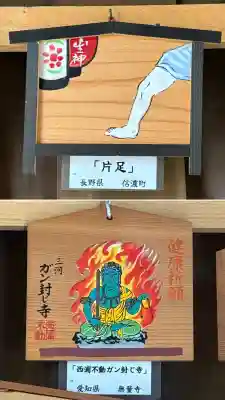 山神
「片足」
長野県 信濃町
健康祈願
三河
ガン封じ寺
西浦不動
「西浦不動ガン封じ寺」
愛知県 無量寺